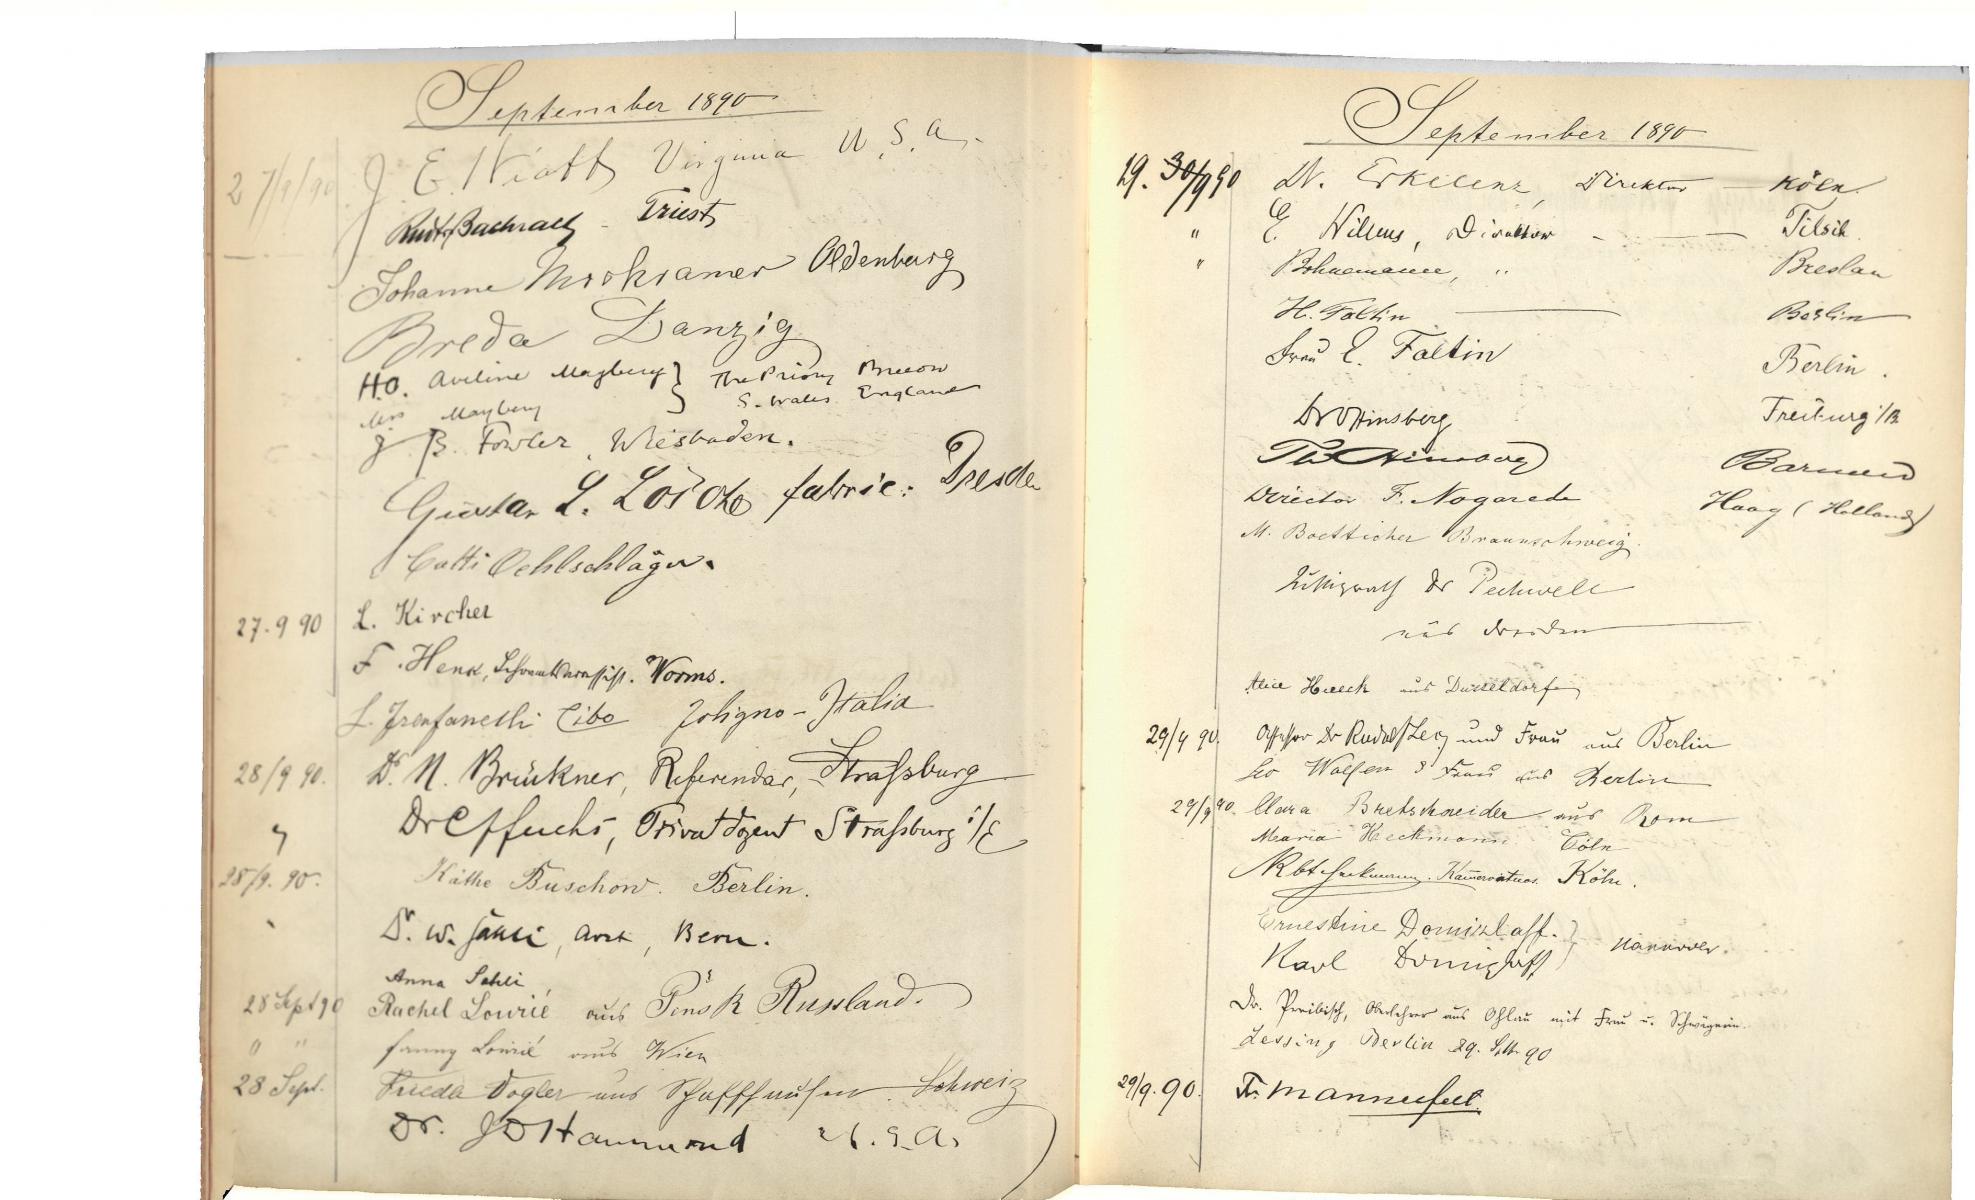 September 1890
27/9/90 J E. Wiatt Virginia U.S.A.
Rud. Bachrach - Triest
Johanne Oldenburg
Breda Danzig
H.O. Aveline Maybery } The Priory Brecon
Mrs Maybery S. Wales England
J. B. Fowler, Wiesbaden.
Gustav L. Fabric: Dresden
Catti Oehlschläger.
27.9 90 L. Kircher
F. Henk, Worms.
Cibo Foligno - Italia
28/9 90. Dr. N. Brückner, Referendar, Straßburg
" Dr C Pfuchs, Privatdozent Straßburg i/E
28/9. 90. Käthe Buschow. Berlin.
Dr. W. Sahli, Arzt, Bern.
Anna Sahli
28 Sept 90 Rachel Lourié aus Pinsk Russland.
" " Fanny Lourié aus Wien
28 Sept. Frieda Vogler aus Schaffhausen. Schweiz
Dr. J D Hammond U.S.A.
September 1890
19. 30/9 90 Dr. Erkelenz, Direktor - Köln.
" E. Willms, Direktor - - Tilsit
" Bohnemann, " Breslau
H. Faltin Berlin
Frau E. Faltin Berlin.
Dr O Hinsberg Freiburg i/B
Hinsberg Barmen
Director F. Nogarede Haag (Holland)
M. Boetticher Braunschweig.
Justizrath Dr Pechwell
aus Dresden
Alice Hueck aus Düsseldorf
29/9 90. Assessor Dr Rudolf und Frau aus Berlin
Leo & Frau aus Berlin
29/9 90. Clara Bretschneider aus Rom
Maria Heckmann Cöln
Köln.
Ernestine Domizlaff. } Hannover.
Karl Domizlaff
Dr. Preibisch, Oberlehrer aus Ohlau mit Frau u. Schwägerin.
Lessing Berlin 29. Sept. 90
29/9.90. Fr. Mannesfeld.